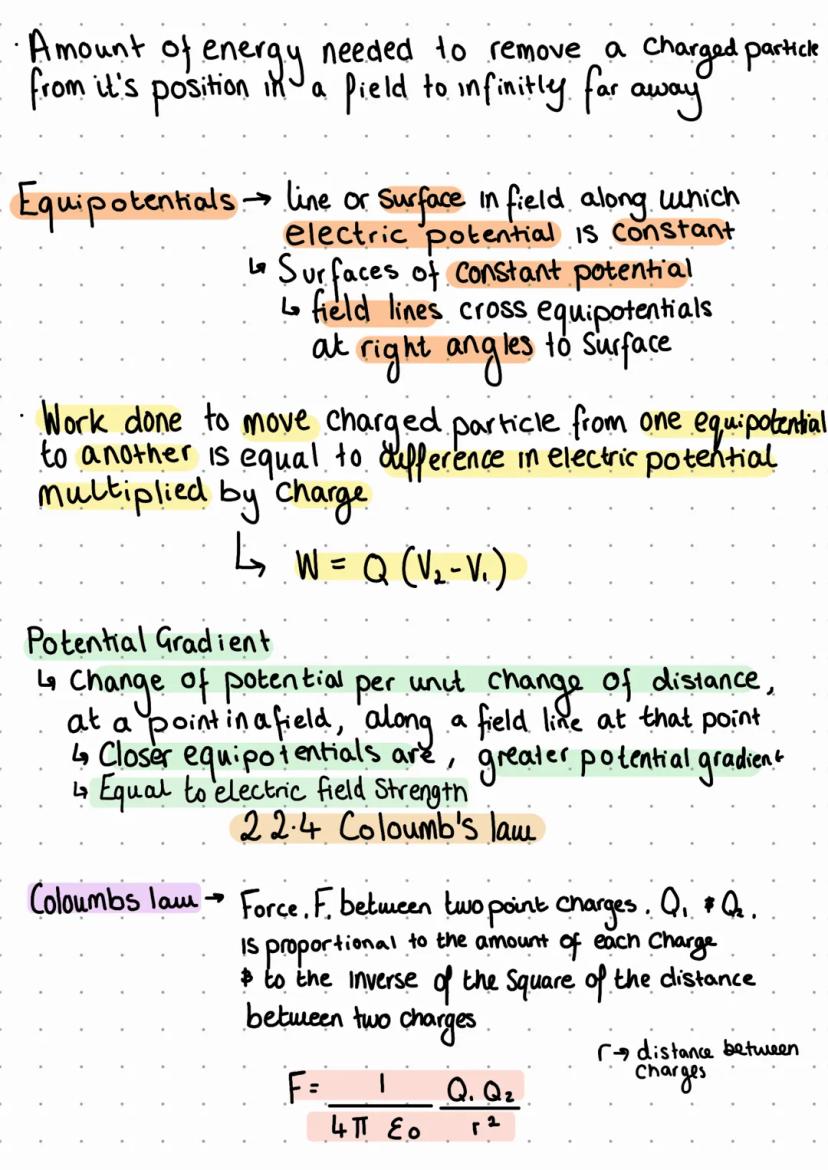 · Amount of energy needed to remove a charged particle
from it's position in a field to infinitly far away
Equipotentials → line or surface in field along which
electric potential is constant
↳ Surfaces of constant potential
↳ field lines cross equipotentials
at right angles to surface
· Work done to move charged particle from one equipotential
to another is equal to difference in electric potential
multiplied by charge
↳ W = Q (V₂-V₁)
Potential Gradient
↳ Change of potential per unit change of distance,
at a point in a field, along a field line at that point
↳ Closer equipotentials are, greater potential gradient
↳ Equal to electric field Strength
22.4 Coloumb's law
Coloumbs law → Force, F, between two point charges, Q₁ & Q₂,
is proportional to the amount of each charge
& to the inverse of the square of the distance
between two charges
r → distance between
charges
F = 1 Q₁ Q₂
4π ε₀ r²